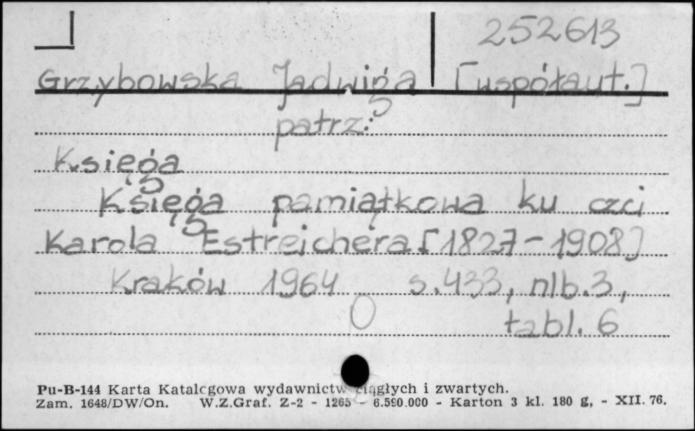 252613
Grzybowska Jadwiga [współaut.]
patrz:
Księga
Księga pamiątkowa ku czci
Karola Estreichera [1827-1908]
Kraków 1964 s.433, nlb.3,
tabl. 6
Pu-B-144 Karta Katalogowa wydawnictw ciągłych i zwartych.
Zam. 1648/DW/On. W.Z.Graf. Z-2 - 1265 6.590.000 - Karton 3 kl. 180 g, - XII. 76.